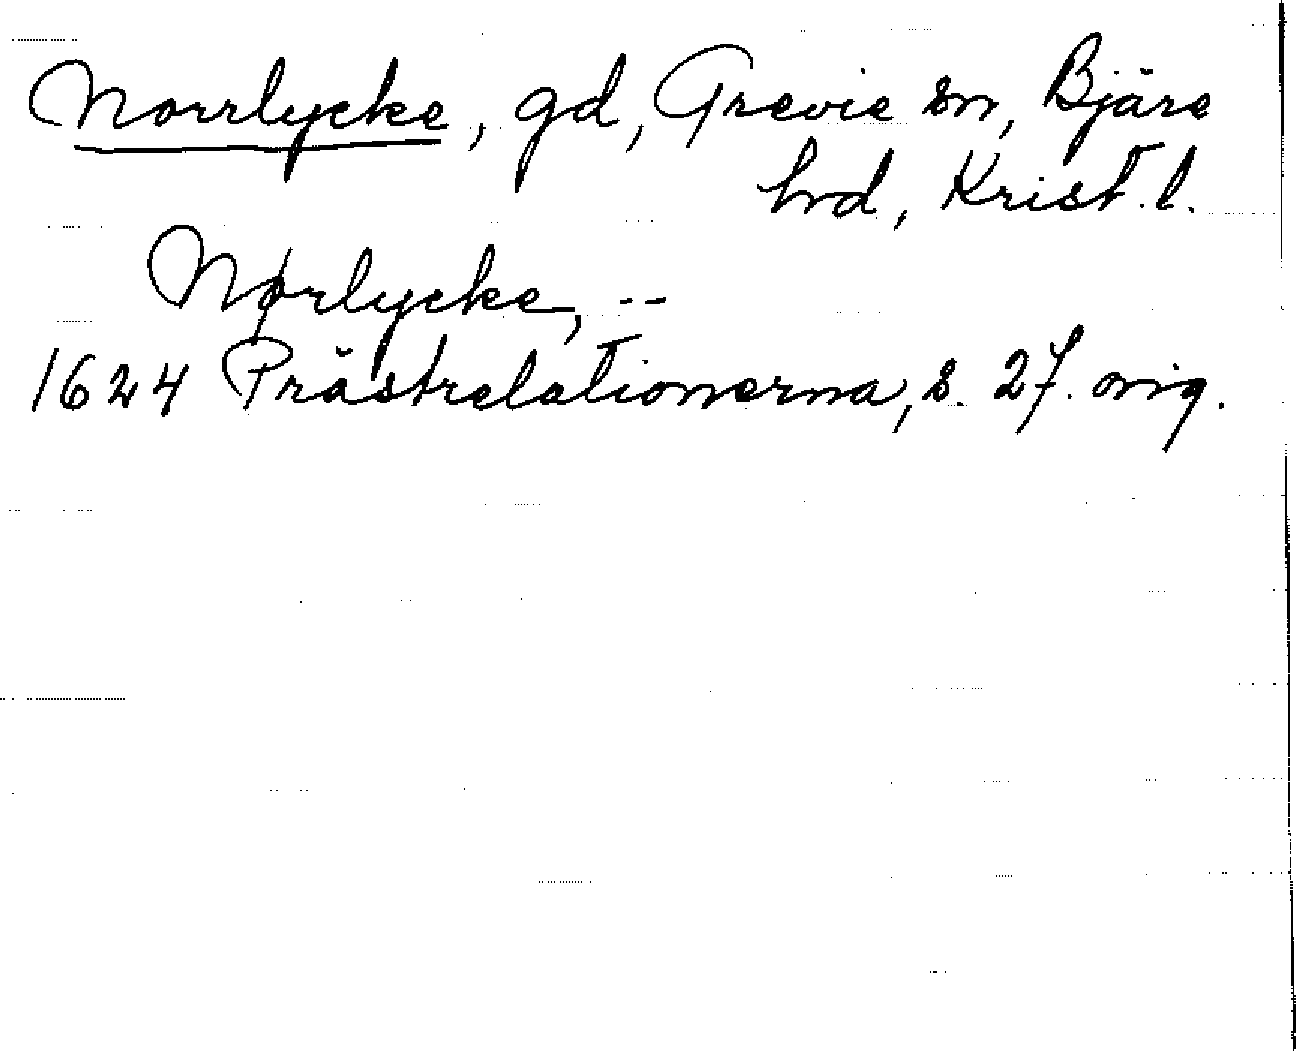 Norrlycke, gd, Grevie sn, Bjäre
hrd, Krist. l.
Nørlycke, --
1624 Prästrelationerna, s. 27. orig.